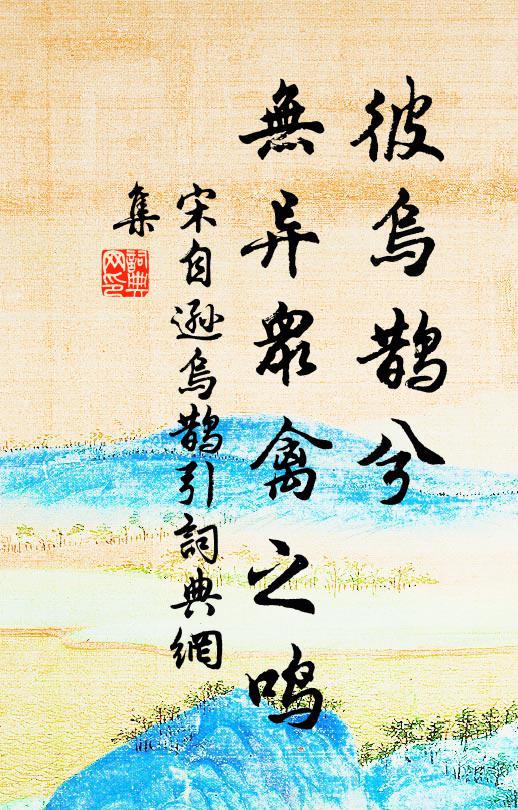 彼烏鵲兮
無异眾禽之鸣
宋自遜烏鵲引詞典網
集
詞典
网印